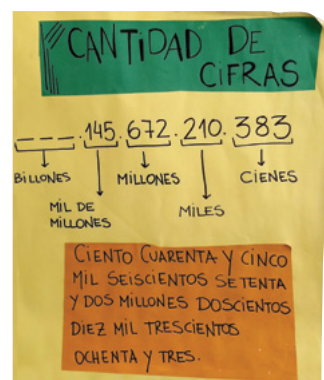 CANTIDAD DE
CIFRAS
_ _ _ .145.672.210.383
BILLONES
MILLONES
CIENES
MIL DE
MILLONES
MILES
CIENTO CUARENTA Y CINCO
MIL SEISCIENTOS SETENTA
Y DOS MILLONES DOSCIENTOS
DIEZ MIL TRESCIENTOS
OCHENTA Y TRES.